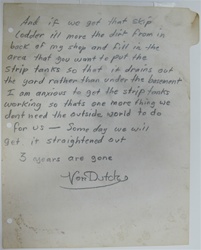 And if we get that skip
lodder ill move the dirt from in
back of my shop and fill in the
area that you want to put the
strip tanks so that it drains out
the yard rather than under the basement
I am anxious to get the strip tanks
working so thats one more thing we
dont need the outside world to do
for us — Some day we will
get it straightened out
3 years are gone
Von Dutch